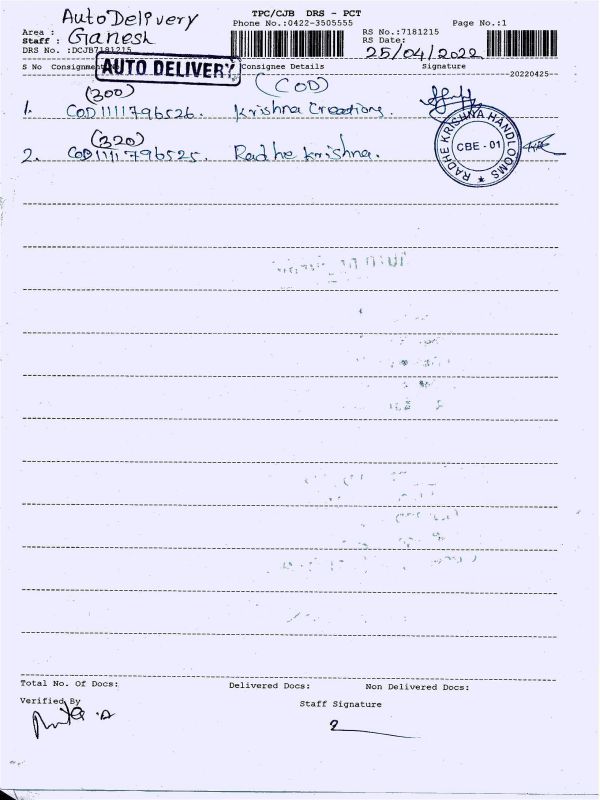 TPC/CJB DRS - PCT
Phone No.:0422-3505555
Page No.:1
Area : Auto Delivery
Staff : Ganesh
DRS No. :DCJB7181215
RS No.:7181215
RS Date:
25/04/2022
AUTO DELIVERY
S No Consignment Consignee Details Signature
--20220425--
(300) (COD)
1. COD1111796526. Krishna Creations.
(320)
2. COD1111796525. Radhe Krishna.
RADHE KRISHNA HANDLOOMS
CBE - 01
Total No. Of Docs: Delivered Docs: Non Delivered Docs:
Verified By Staff Signature
2